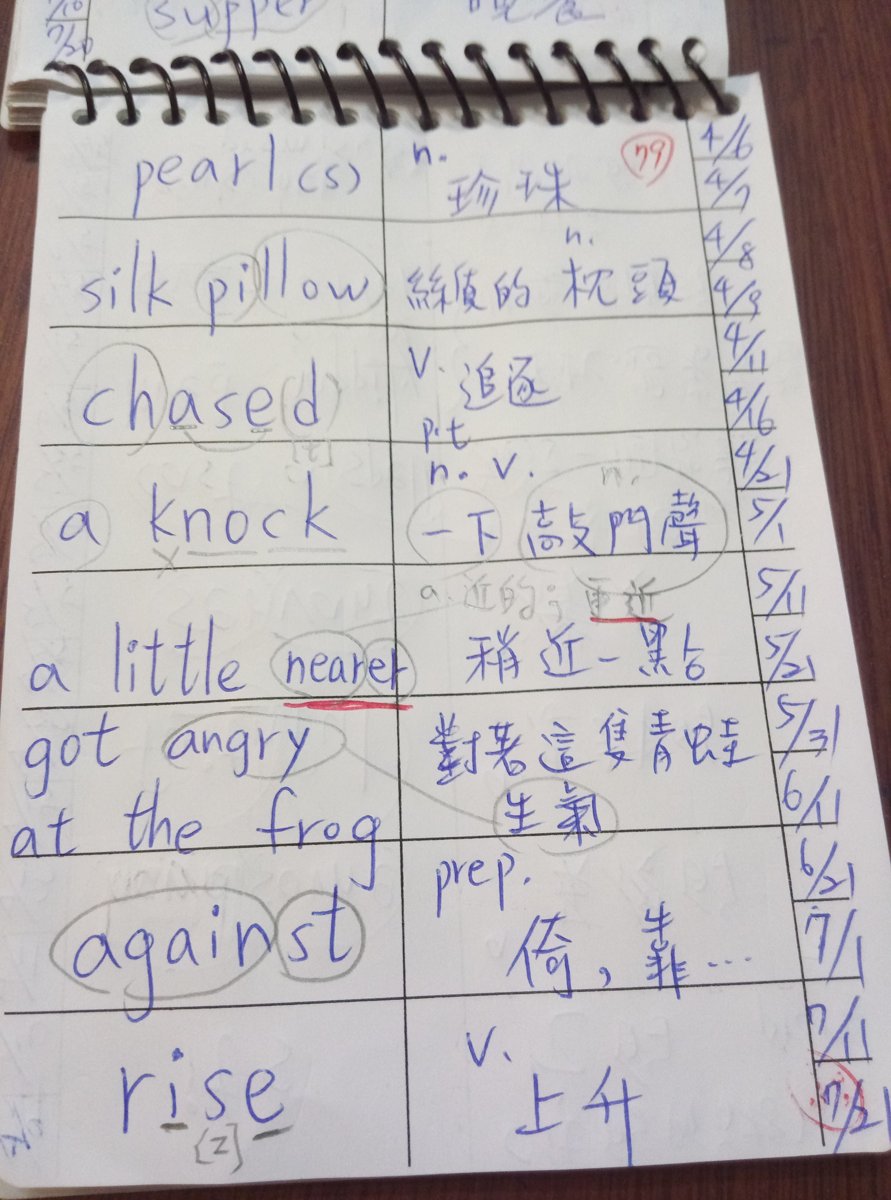 7/10
7/20
supper
pearl(s)
n.
珍珠
79
4/6
4/7
silk pillow
n.
絲質的 枕頭
4/8
4/9
chased
[t]
v. 追逐
p.t
4/11
4/16
a knock
x
n. v.
n.
一下 敲門聲
4/21
5/1
a little nearer
a. 近的; 更近
稍近一點
5/11
5/21
got angry
at the frog
對著這隻青蛙
生氣
5/31
6/11
against
prep.
倚, 靠…
6/21
7/1
rise
[z]
v.
上升
7/11
7/21